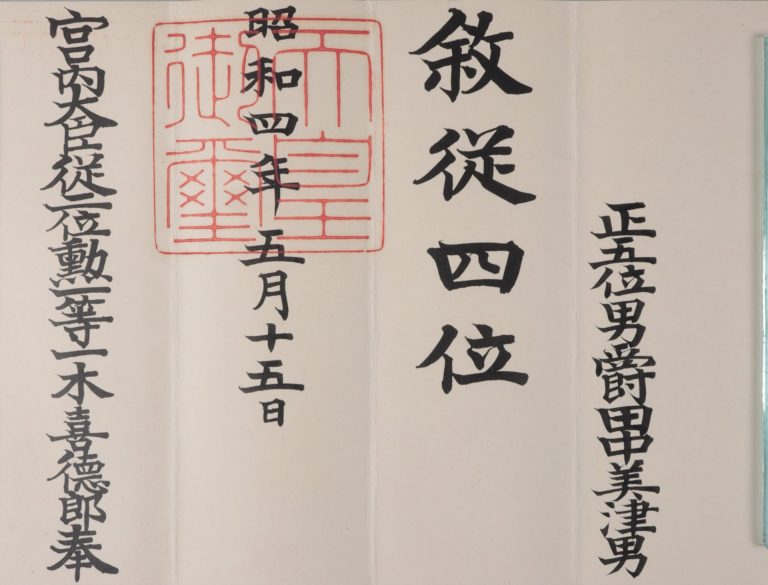 正五位男爵田中美津男
敘従四位
昭和四年五月十五日
天皇御璽
宮内大臣従二位勲一等一木喜徳郎奉